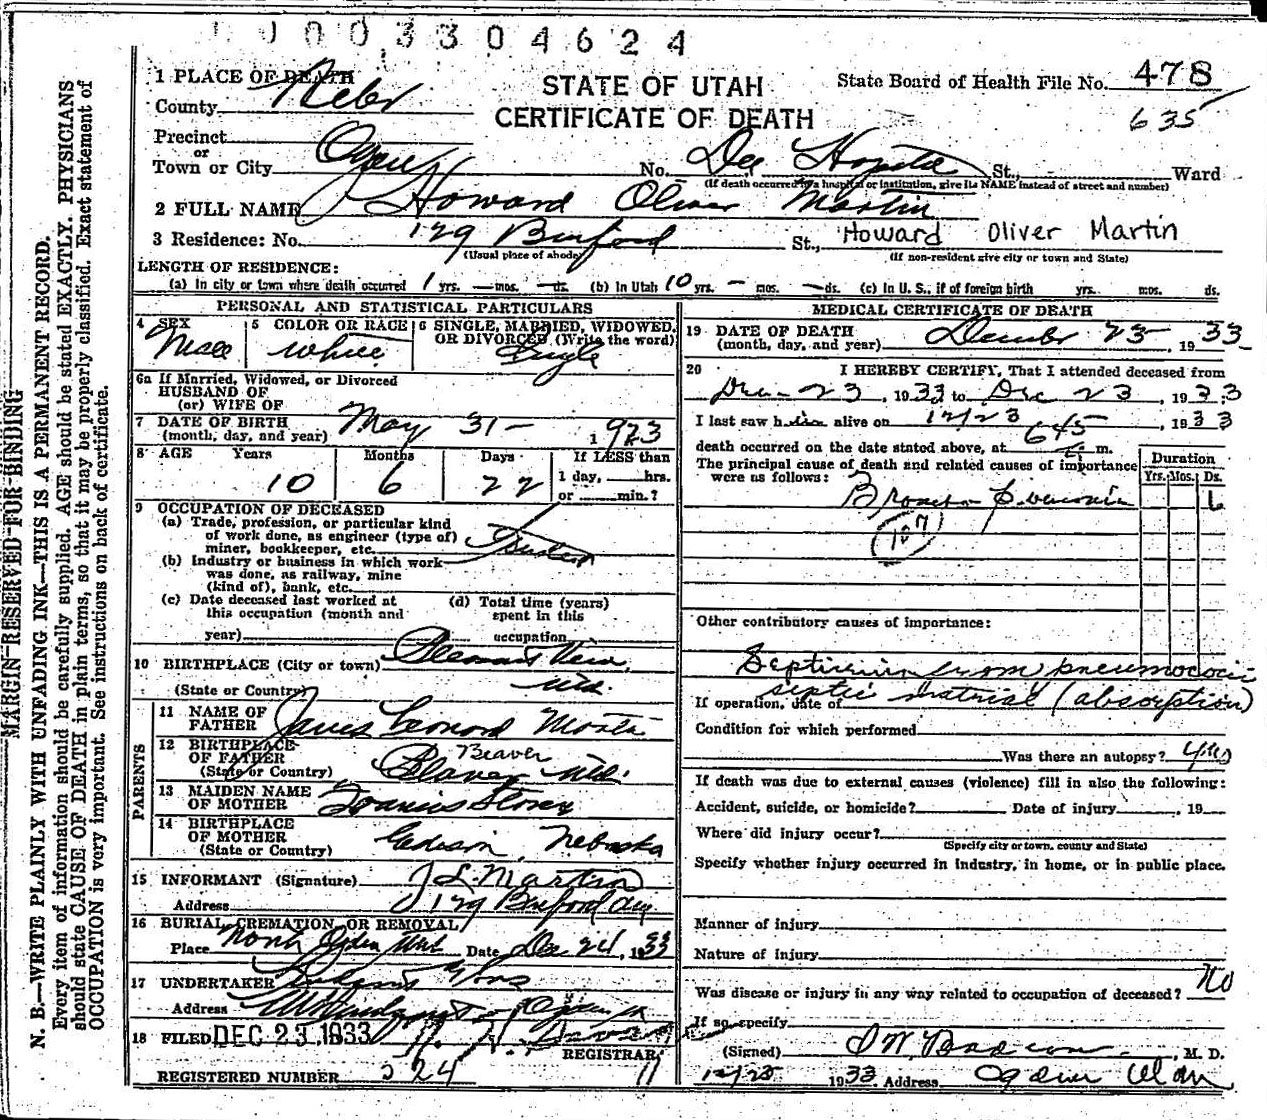 0003304624
1 PLACE OF DEATH
County Weber
Precinct
or
Town or City Ogden
STATE OF UTAH
CERTIFICATE OF DEATH
State Board of Health File No. 478
635
No. Dee Hospital St., Ward
(If death occurred in a hospital or institution, give its NAME instead of street and number)
2 FULL NAME Howard Oliver Martin
3 Residence: No. 129 Binford St., Howard Oliver Martin
(Usual place of abode) (If non-resident give city or town and State)
LENGTH OF RESIDENCE:
(a) In city or town where death occurred 1 yrs. — mos. — ds. (b) In Utah 10 yrs. — mos. — ds. (c) In U. S., if of foreign birth yrs. mos. ds.
PERSONAL AND STATISTICAL PARTICULARS
4 SEX Male
5 COLOR OR RACE White
6 SINGLE, MARRIED, WIDOWED, OR DIVORCED (Write the word) Single
6a If Married, Widowed, or Divorced
HUSBAND OF
(or) WIFE OF
7 DATE OF BIRTH
(month, day, and year) May 31— 1923
8 AGE Years Months Days If LESS than
10 6 22 1 day, hrs.
or min.?
9 OCCUPATION OF DECEASED
(a) Trade, profession, or particular kind
of work done, as engineer (type of)
miner, bookkeeper, etc. Student
(b) Industry or business in which work
was done, as railway, mine
(kind of), bank, etc.
(c) Date deceased last worked at
this occupation (month and
year)
(d) Total time (years)
spent in this
occupation
10 BIRTHPLACE (City or town) Pleasant View
(State or Country) Utah
PARENTS
11 NAME OF
FATHER James Leonard Martin
12 BIRTHPLACE
OF FATHER
(State or Country) Beaver Beaver Utah
13 MAIDEN NAME
OF MOTHER Storey
14 BIRTHPLACE
OF MOTHER
(State or Country) Edison, Nebraska
15 INFORMANT (Signature) J L Martin
Address 129 Binford Ave
16 BURIAL, CREMATION, OR REMOVAL
Place North Ogden Utah Date Dec 24, 1933
17 UNDERTAKER & Sons
Address Ogden
18 FILED DEC 23 1933
REGISTRAR
REGISTERED NUMBER 524 11
MEDICAL CERTIFICATE OF DEATH
19 DATE OF DEATH
(month, day, and year) December 23— , 1933
20 I HEREBY CERTIFY, That I attended deceased from
Dec— 23 , 1933 to Dec 23 , 1933
I last saw him alive on 12/23 , 1933
death occurred on the date stated above, at 645 m.
The principal cause of death and related causes of importance
were as follows:
Duration
Yrs. Mos. Ds.
Broncho Pneumonia 6
107
Other contributory causes of importance:
from pneumococci
septic material (absorption)
If operation, date of
Condition for which performed
Was there an autopsy? yes
If death was due to external causes (violence) fill in also the following:
Accident, suicide, or homicide? Date of injury , 19
Where did injury occur?
(Specify city or town, county and State)
Specify whether injury occurred in industry, in home, or in public place.
Manner of injury
Nature of injury
Was disease or injury in any way related to occupation of deceased? No
If so, specify
(Signed) , M. D.
12/25 1933 Address Ogden Utah
MARGIN RESERVED FOR BINDING
N. B.—WRITE PLAINLY WITH UNFADING INK—THIS IS A PERMANENT RECORD.
Every item of information should be carefully supplied. AGE should be stated EXACTLY. PHYSICIANS
should state CAUSE OF DEATH in plain terms, so that it may be properly classified. Exact statement of
OCCUPATION is very important. See instructions on back of certificate.